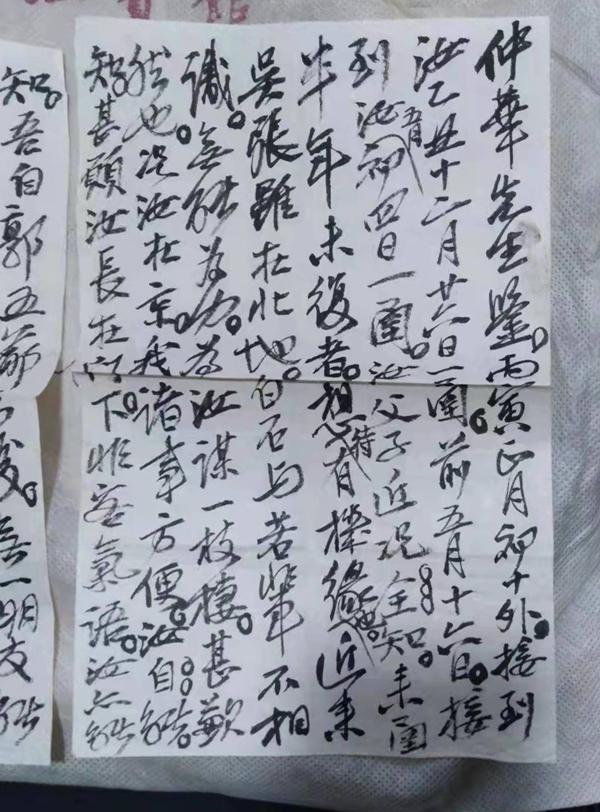 仲華先生鑒。丙寅正月初十外。接到
汝乙丑十二月廿六日一函。前五月十六日。接
到汝五月初四日一函。汝父子近况全知。来函
半年未復者。想待有機緣也。近来
吳張雖在北地。白石与若輩不相
識。無能為功。為汝謀一枝棲。甚歉
然也。况汝在京。我諸事方便。汝自能
知。甚願汝長在門下。非客氣語。汝亦能
知。吾自郭五
無一朋友能